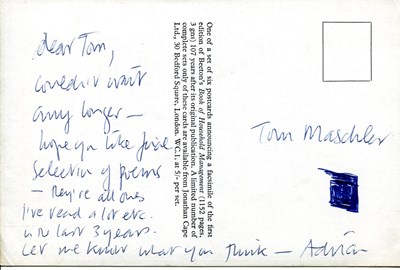 dear Tom,
couldn't wait
any longer –
hope you like final
selection of poems
– they're all ones
I've read a lot etc.
in last 3 years.
Let me know what you think – Adrian
One of a set of six postcards announcing a facsimile of the first
edition of Beeton's Book of Household Management (1152 pages,
3 gns) 107 years after its original publication. A limited number of
complete sets only of these cards are available from Jonathan Cape
Ltd., 30 Bedford Square, London, WC.1, at 5/- per set.
Tom Maschler